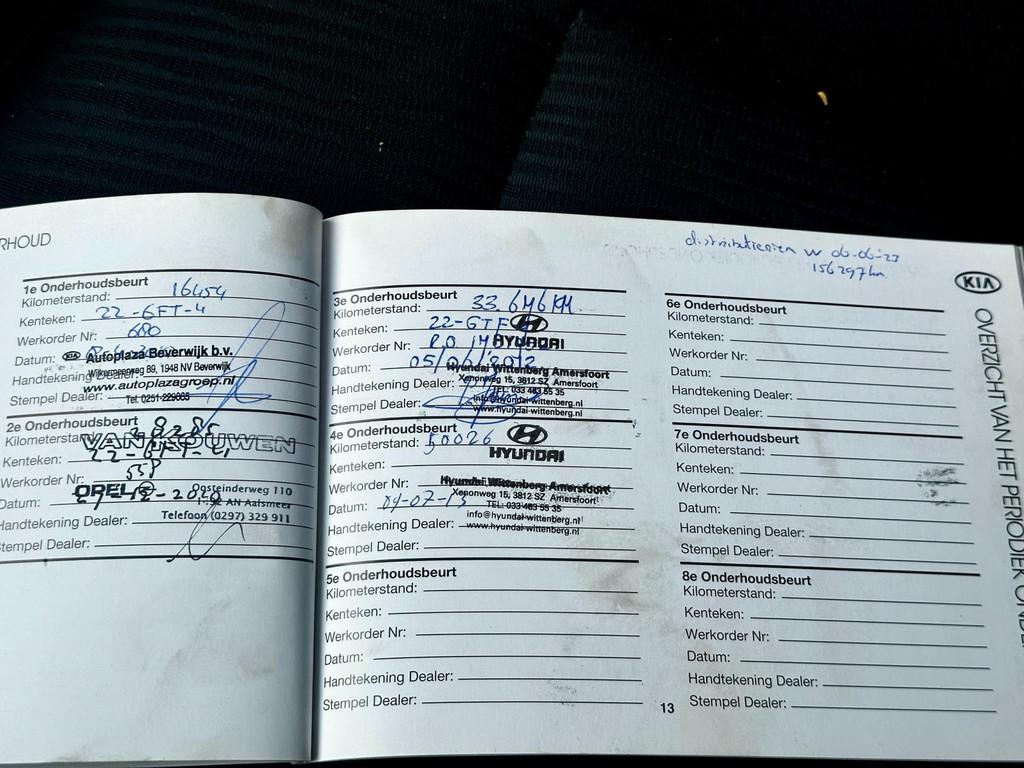 RHOUD
1e Onderhoudsbeurt
Kilometerstand: 16454
Kenteken: 22-GFT-4
Werkorder Nr: 680
Datum:
KIA Autoplaza Beverwijk b.v.
Wijkermeerweg 89, 1948 NV Beverwijk
Handtekening
www.autoplazagroep.nl
Stempel Dealer:
Tel. 0251-229065
2e Onderhoudsbeurt
Kilometersta
VAN KOUWEN
Kenteken: 22-GFT-4
Werkorder Nr: 558
Datum:
OPEL
Oosteinderweg 110
AN Aalsmeer
Handtekening Dealer:
Telefoon (0297) 329 911
Stempel Dealer:
3e Onderhoudsbeurt
Kilometerstand: 33.646 KM
Kenteken: 22-GTF
Werkorder Nr:
HYUNDAI
Datum: 05/06/2012
Hyundai Wittenberg Amersfoort
Xenonweg 15, 3812 SZ Amersfoort
Handtekening Dealer:
TEL: 033 463 55 35
info@hyundai-wittenberg.nl
Stempel Dealer:
www.hyundai-wittenberg.nl
4e Onderhoudsbeurt
Kilometerstand: 50026
Kenteken:
HYUNDAI
Werkorder Nr:
Hyundai Wittenberg Amersfoort
Xenonweg 15, 3812 SZ Amersfoort
Datum: 04-07-13
TEL: 033 463 55 35
info@hyundai-wittenberg.nl
Handtekening Dealer:
www.hyundai-wittenberg.nl
Stempel Dealer:
5e Onderhoudsbeurt
Kilometerstand:
Kenteken:
Werkorder Nr:
Datum:
Handtekening Dealer:
Stempel Dealer:
13
06-06-23
156297km
6e Onderhoudsbeurt
Kilometerstand:
Kenteken:
Werkorder Nr:
Datum:
Handtekening Dealer:
Stempel Dealer:
7e Onderhoudsbeurt
Kilometerstand:
Kenteken:
Werkorder Nr:
Datum:
Handtekening Dealer:
Stempel Dealer:
8e Onderhoudsbeurt
Kilometerstand:
Kenteken:
Werkorder Nr:
Datum:
Handtekening Dealer:
Stempel Dealer:
KIA
OVERZICHT VAN HET PERIODIEK ONDE